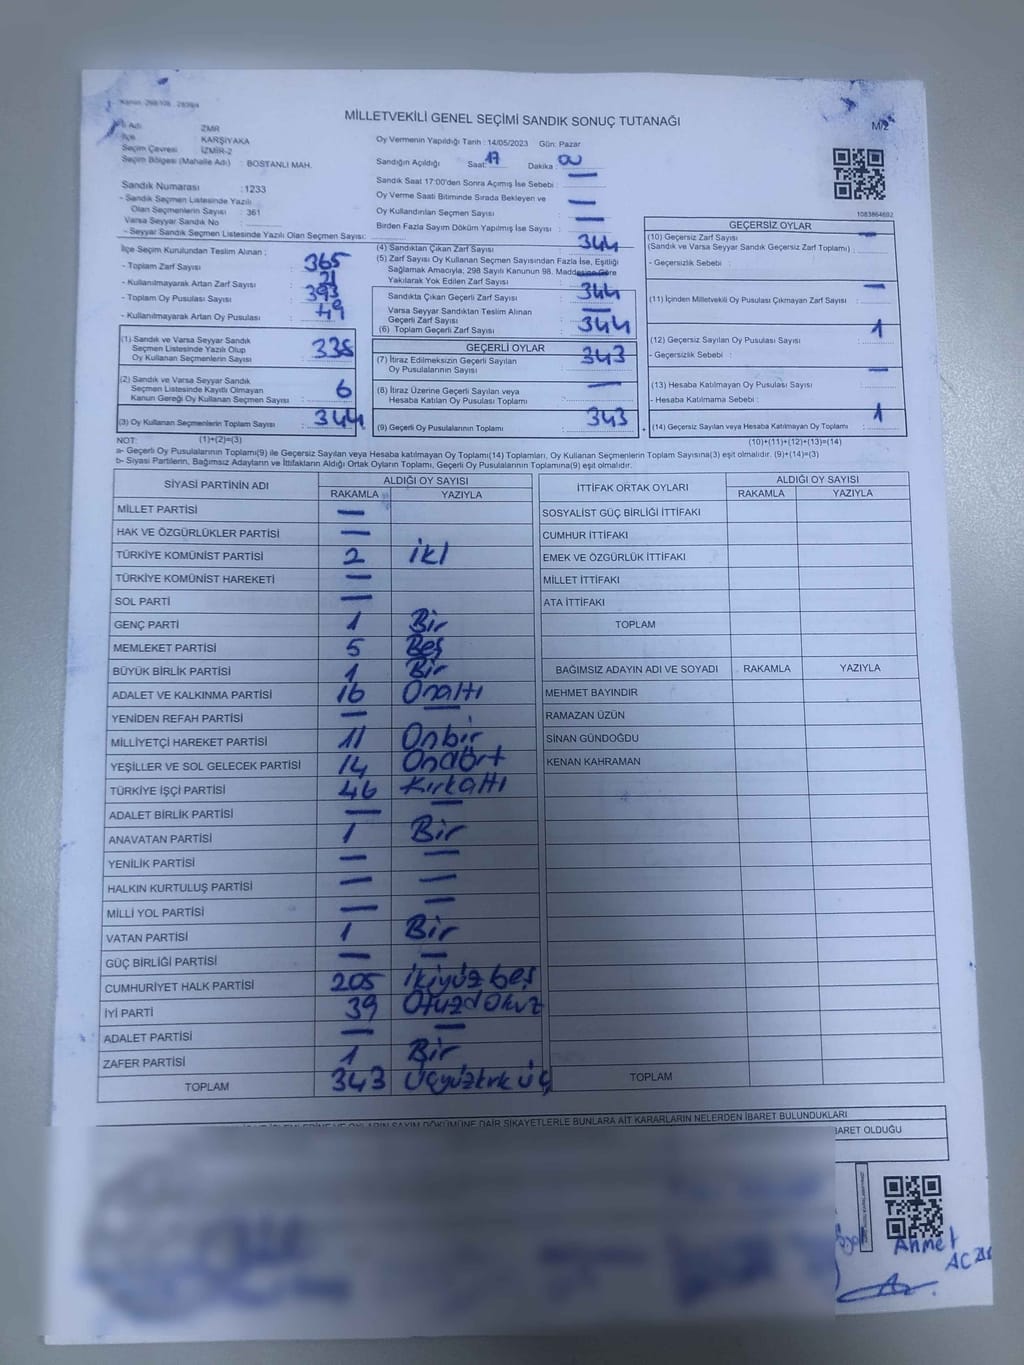 MİLLETVEKİLİ GENEL SEÇİMİ SANDIK SONUÇ TUTANAĞI
M/2
İZMİR
KARŞIYAKA
Seçim Çevresi : İZMİR-2
Seçim Bölgesi (Mahalle Adı) : BOSTANLI MAH.
Sandık Numarası : 1233
- Sandık Seçmen Listesinde Yazılı
Olan Seçmenlerin Sayısı : 361
Varsa Seyyar Sandık No
- Seyyar Sandık Seçmen Listesinde Yazılı Olan Seçmen Sayısı:
Oy Vermenin Yapıldığı Tarih : 14/05/2023 Gün: Pazar
Sandığın Açıldığı Saat: 17 Dakika : 00
Sandık Saat 17:00'den Sonra Açımış İse Sebebi : —
Oy Verme Saati Bitiminde Sırada Bekleyen ve
Oy Kullandırılan Seçmen Sayısı : —
Birden Fazla Sayım Döküm Yapılmış İse Sayısı : —
1083864602
İlçe Seçim Kurulundan Teslim Alınan ;
- Toplam Zarf Sayısı : 365
- Kullanılmayarak Artan Zarf Sayısı : 21
- Toplam Oy Pusulası Sayısı : 393
- Kullanılmayarak Artan Oy Pusulası : 49
(1) Sandık ve Varsa Seyyar Sandık
Seçmen Listesinde Yazılı Olup
Oy Kullanan Seçmenlerin Sayısı : 338
(2) Sandık ve Varsa Seyyar Sandık
Seçmen Listesinde Kayıtlı Olmayan
Kanun Gereği Oy Kullanan Seçmen Sayısı : 6
(3) Oy Kullanan Seçmenlerin Toplam Sayısı : 344
(4) Sandıktan Çıkan Zarf Sayısı : 344
(5) Zarf Sayısı Oy Kullanan Seçmen Sayısından Fazla İse, Eşitliği
Sağlamak Amacıyla, 298 Sayılı Kanunun 98. Maddesine Göre
Yakılarak Yok Edilen Zarf Sayısı : —
Sandıkta Çıkan Geçerli Zarf Sayısı : 344
Varsa Seyyar Sandıktan Teslim Alınan
Geçerli Zarf Sayısı : —
(6) Toplam Geçerli Zarf Sayısı : 344
GEÇERLİ OYLAR
(7) İtiraz Edilmeksizin Geçerli Sayılan
Oy Pusulalarının Sayısı : 343
(8) İtiraz Üzerine Geçerli Sayılan veya
Hesaba Katılan Oy Pusulası Toplamı : —
(9) Geçerli Oy Pusulalarının Toplamı : 343
GEÇERSİZ OYLAR
(10) Geçersiz Zarf Sayısı : —
(Sandık ve Varsa Seyyar Sandık Geçersiz Zarf Toplamı)
- Geçersizlik Sebebi :
(11) İçinden Milletvekili Oy Pusulası Çıkmayan Zarf Sayısı : —
(12) Geçersiz Sayılan Oy Pusulası Sayısı : 1
- Geçersizlik Sebebi :
(13) Hesaba Katılmayan Oy Pusulası Sayısı : —
- Hesaba Katılmama Sebebi :
(14) Geçersiz Sayılan veya Hesaba Katılmayan Oy Toplamı : 1
NOT: (1)+(2)=(3) (10)+(11)+(12)+(13)=(14)
a- Geçerli Oy Pusulalarının Toplamı(9) ile Geçersiz Sayılan veya Hesaba katılmayan Oy Toplamı(14) Toplamları, Oy Kullanan Seçmenlerin Toplam Sayısına(3) eşit olmalıdır. (9)+(14)=(3)
b- Siyasi Partilerin, Bağımsız Adayların ve İttifakların Aldığı Ortak Oyların Toplamı, Geçerli Oy Pusulalarının Toplamına(9) eşit olmalıdır.
SİYASİ PARTİNİN ADI ALDIĞI OY SAYISI
RAKAMLA YAZIYLA
MİLLET PARTİSİ —
HAK VE ÖZGÜRLÜKLER PARTİSİ —
TÜRKİYE KOMÜNİST PARTİSİ 2 iki
TÜRKİYE KOMÜNİST HAREKETİ —
SOL PARTİ —
GENÇ PARTİ 1 Bir
MEMLEKET PARTİSİ 5 Beş
BÜYÜK BİRLİK PARTİSİ 1 Bir
ADALET VE KALKINMA PARTİSİ 16 Onaltı
YENİDEN REFAH PARTİSİ — —
MİLLİYETÇİ HAREKET PARTİSİ 11 Onbir
YEŞİLLER VE SOL GELECEK PARTİSİ 14 Ondört
TÜRKİYE İŞÇİ PARTİSİ 46 Kırkaltı
ADALET BİRLİK PARTİSİ — —
ANAVATAN PARTİSİ 1 Bir
YENİLİK PARTİSİ — —
HALKIN KURTULUŞ PARTİSİ — —
MİLLİ YOL PARTİSİ — —
VATAN PARTİSİ 1 Bir
GÜÇ BİRLİĞİ PARTİSİ — —
CUMHURİYET HALK PARTİSİ 205 ikiyüz beş
İYİ PARTİ 39 Otuzdokuz
ADALET PARTİSİ — —
ZAFER PARTİSİ 1 Bir
TOPLAM 343 Üçyüzkrk üç
İTTİFAK ORTAK OYLARI ALDIĞI OY SAYISI
RAKAMLA YAZIYLA
SOSYALİST GÜÇ BİRLİĞİ İTTİFAKI
CUMHUR İTTİFAKI
EMEK VE ÖZGÜRLÜK İTTİFAKI
MİLLET İTTİFAKI
ATA İTTİFAKI
TOPLAM
BAĞIMSIZ ADAYIN ADI VE SOYADI RAKAMLA YAZIYLA
MEHMET BAYINDIR
RAMAZAN ÜZÜN
SİNAN GÜNDOĞDU
KENAN KAHRAMAN
TOPLAM
OYLARIN SAYIM DÖKÜMÜNE DAİR ŞİKAYETLERLE BUNLARA AİT KARARLARIN NELERDEN İBARET BULUNDUKLARI
BARET OLDUĞU
Ahmet